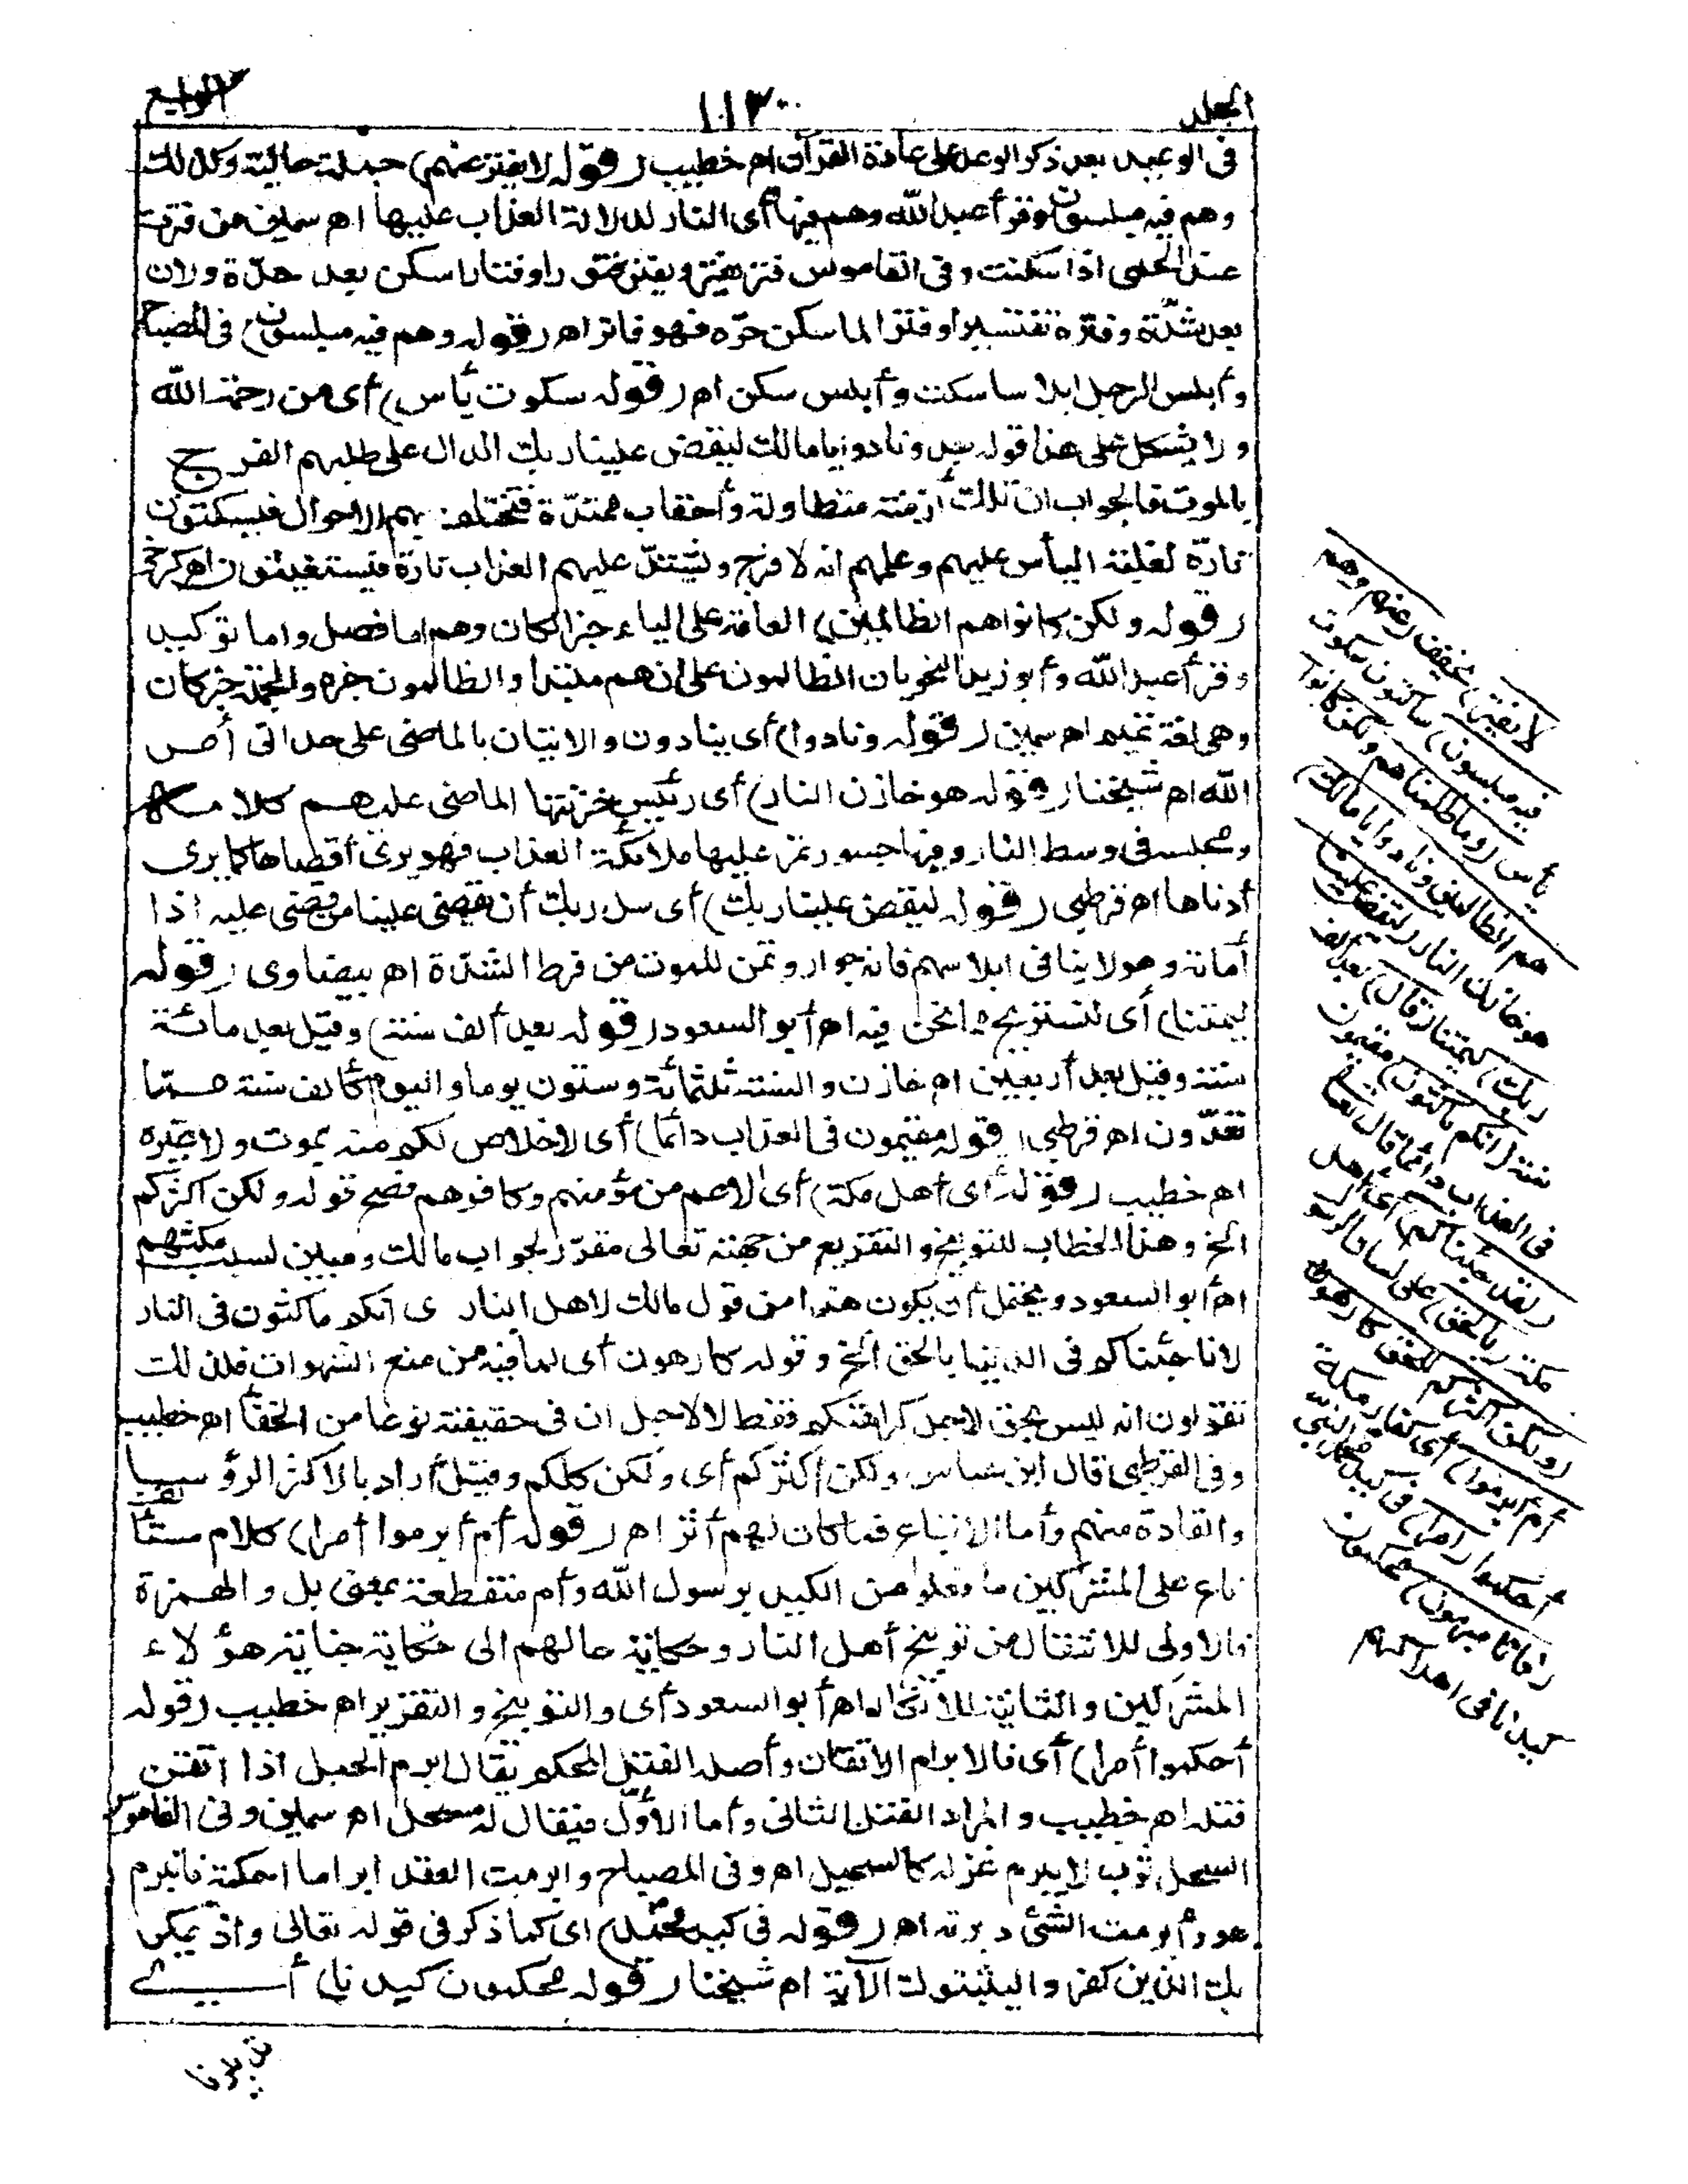 الجلد ١١٣ الرابع
في الوعيد بعد ذكر الوعد على عادة القرآن اه خطيب (قوله لا يفتر عنهم) جملة حالية وكذلك
وهم فيه مبلسون وقرأ عبد الله وهم فيها أى النار لدلالة العذاب عليها اه سمين من فترت
عنه الحمى اذا سكنت وفى القاموس فتر يفتر ويفتر فتورا وفتارا سكن بعد حدّة ولان
بعد شدّته وفتره تفتيرا وفتر الماء سكن حرّه فهو فاتر اه (قوله وهم فيه مبلسون) فى المصباح
وأبلس الرجل ابلاسا سكت وأبلس سكن اه (قوله سكوت يأس) أى من رحمة الله
ولا يشكل على هذا قوله بعد ونادوا يا مالك ليقض علينا ربك الدال على طلبهم الفرج
بالموت فالجواب ان تلك أزمنة متطاولة وأحقاب ممتدّة فتختلف بهم الاحوال فيسكتون
تارة لغلبة اليأس عليهم وعلمهم انه لا فرج ويشتدّ عليهم العذاب تارة فيستغيثون اه كرخى
(قوله ولكن كانوا هم الظالمين) العامة على الياء خبرا لكان وهم اما فصل واما توكيد
وقرأ عبد الله وأبو زيد النحويان الظالمون على ان هم مبتدأ والظالمون خبره والجملة خبر كان
وهى لغة تميم اه سمين (قوله ونادوا) أى ينادون والاتيان بالماضى على حد اتى أمر
الله اه شيخنا (قوله هو خازن النار) أى رئيس خزنتها الماضى عليهم كلامه
ومجلسه فى وسط النار وفيها جسور تمر عليها ملائكة العذاب فهو يرى أقصاها كما يرى
أدناها اه قرطبى (قوله ليقض علينا ربك) أى سل ربك أن يقضى علينا من قضى عليه اذا
أماته وهو لا ينافى ابلاسهم فانه جوار وتمن للموت من فرط الشدّة اه بيضاوى (قوله
ليمتنا) أى لنستريح مما نحن فيه اه أبو السعود (قوله بعد ألف سنة) وقيل بعد مائة
سنة وقيل بعد أربعين اه خازن والسنة ثلثمائة وستون يوما واليوم كألف سنة مما
تعدّون اه قرطبى (قوله مقيمون فى العذاب دائما) أى لا خلاص لكم منه بموت ولا بغيره
اه خطيب (قوله أى أهل مكة) أى الاعم من مؤمنهم وكافرهم فصح قوله ولكن اكثركم
الخ وهذا الخطاب للتوبيخ والتقريع من جهته تعالى مقرّر لجواب مالك ومبين لسبب مكثهم
اه أبو السعود ويحتمل أن يكون هذا من قول مالك لاهل النار أى انكم ماكثون فى النار
لانا جئناكم فى الدنيا بالحق الخ وقوله كارهون أى لما فيه من منع الشهوات فلذلك
تقولون انه ليس بحق لاجل كراهتكم فقط لا لاجل ان فى حقيقته نوعا من الخفأ اه خطيب
وفى القرطبى قال ابن عباس ولكن أكثركم أى ولكن كلكم وقيل أراد بالاكثر الرؤسا
والقادة منهم وأما الاتباع فما كان لهم أثر اه (قوله أم أبرموا أمرا) كلام مستأنف
ناع على المشركين ما فعلوا من الكيد برسول الله وأم منقطعة بمعنى بل والهمزة
فالاولى للانتقال من توبيخ أهل النار وحكاية حالهم الى حكاية جناية هؤلاء
المشركين والثانية للانكار اه أبو السعود أى والتوبيخ والتقرير اه خطيب (قوله
أحكموا أمرا) أى فالابرام الاتقان وأصله الفتل المحكم يقال ابرم الحبل اذا اتقن
فتله اه خطيب والمراد الفتل الثانى وأما الأول فيقال له سحل اه سمين وفى القاموس
السحل ثوب لا يبرم غزله كالسحيل اه وفى المصباح وابرمت العقد ابراما احكمته فانبرم
هو وأبرمت الشئ دبرته اه (قوله فى كيد محمّد) اى كما ذكر فى قوله تعالى واذ يمكر
بك الذين كفروا ليثبتوك الآية اه شيخنا (قوله محكمون كيدنا) أى
لا يفتر) يخفف (عنهم وهم
فيه مبلسون) ساكتون سكوت
يأس (وما ظلمناهم ولكن كانوا
هم الظالمين ونادوا يا مالك)
هو خازن النار (ليقض علينا
ربك) ليمتنا (قال) بعد ألف
سنة (انكم ماكثون) مقيمون
فى العذاب دائما قال تعالى
(لقد جئناكم) أى أهل
مكة (بالحق) على لسان الرسول
(ولكن اكثركم للحق كارهون
أم أبرموا) أى كفار مكة
أحكموا (امرا) فى كيد محمد النبى
(فانا مبرمون) محكمون
كيدنا فى اهلاكهم